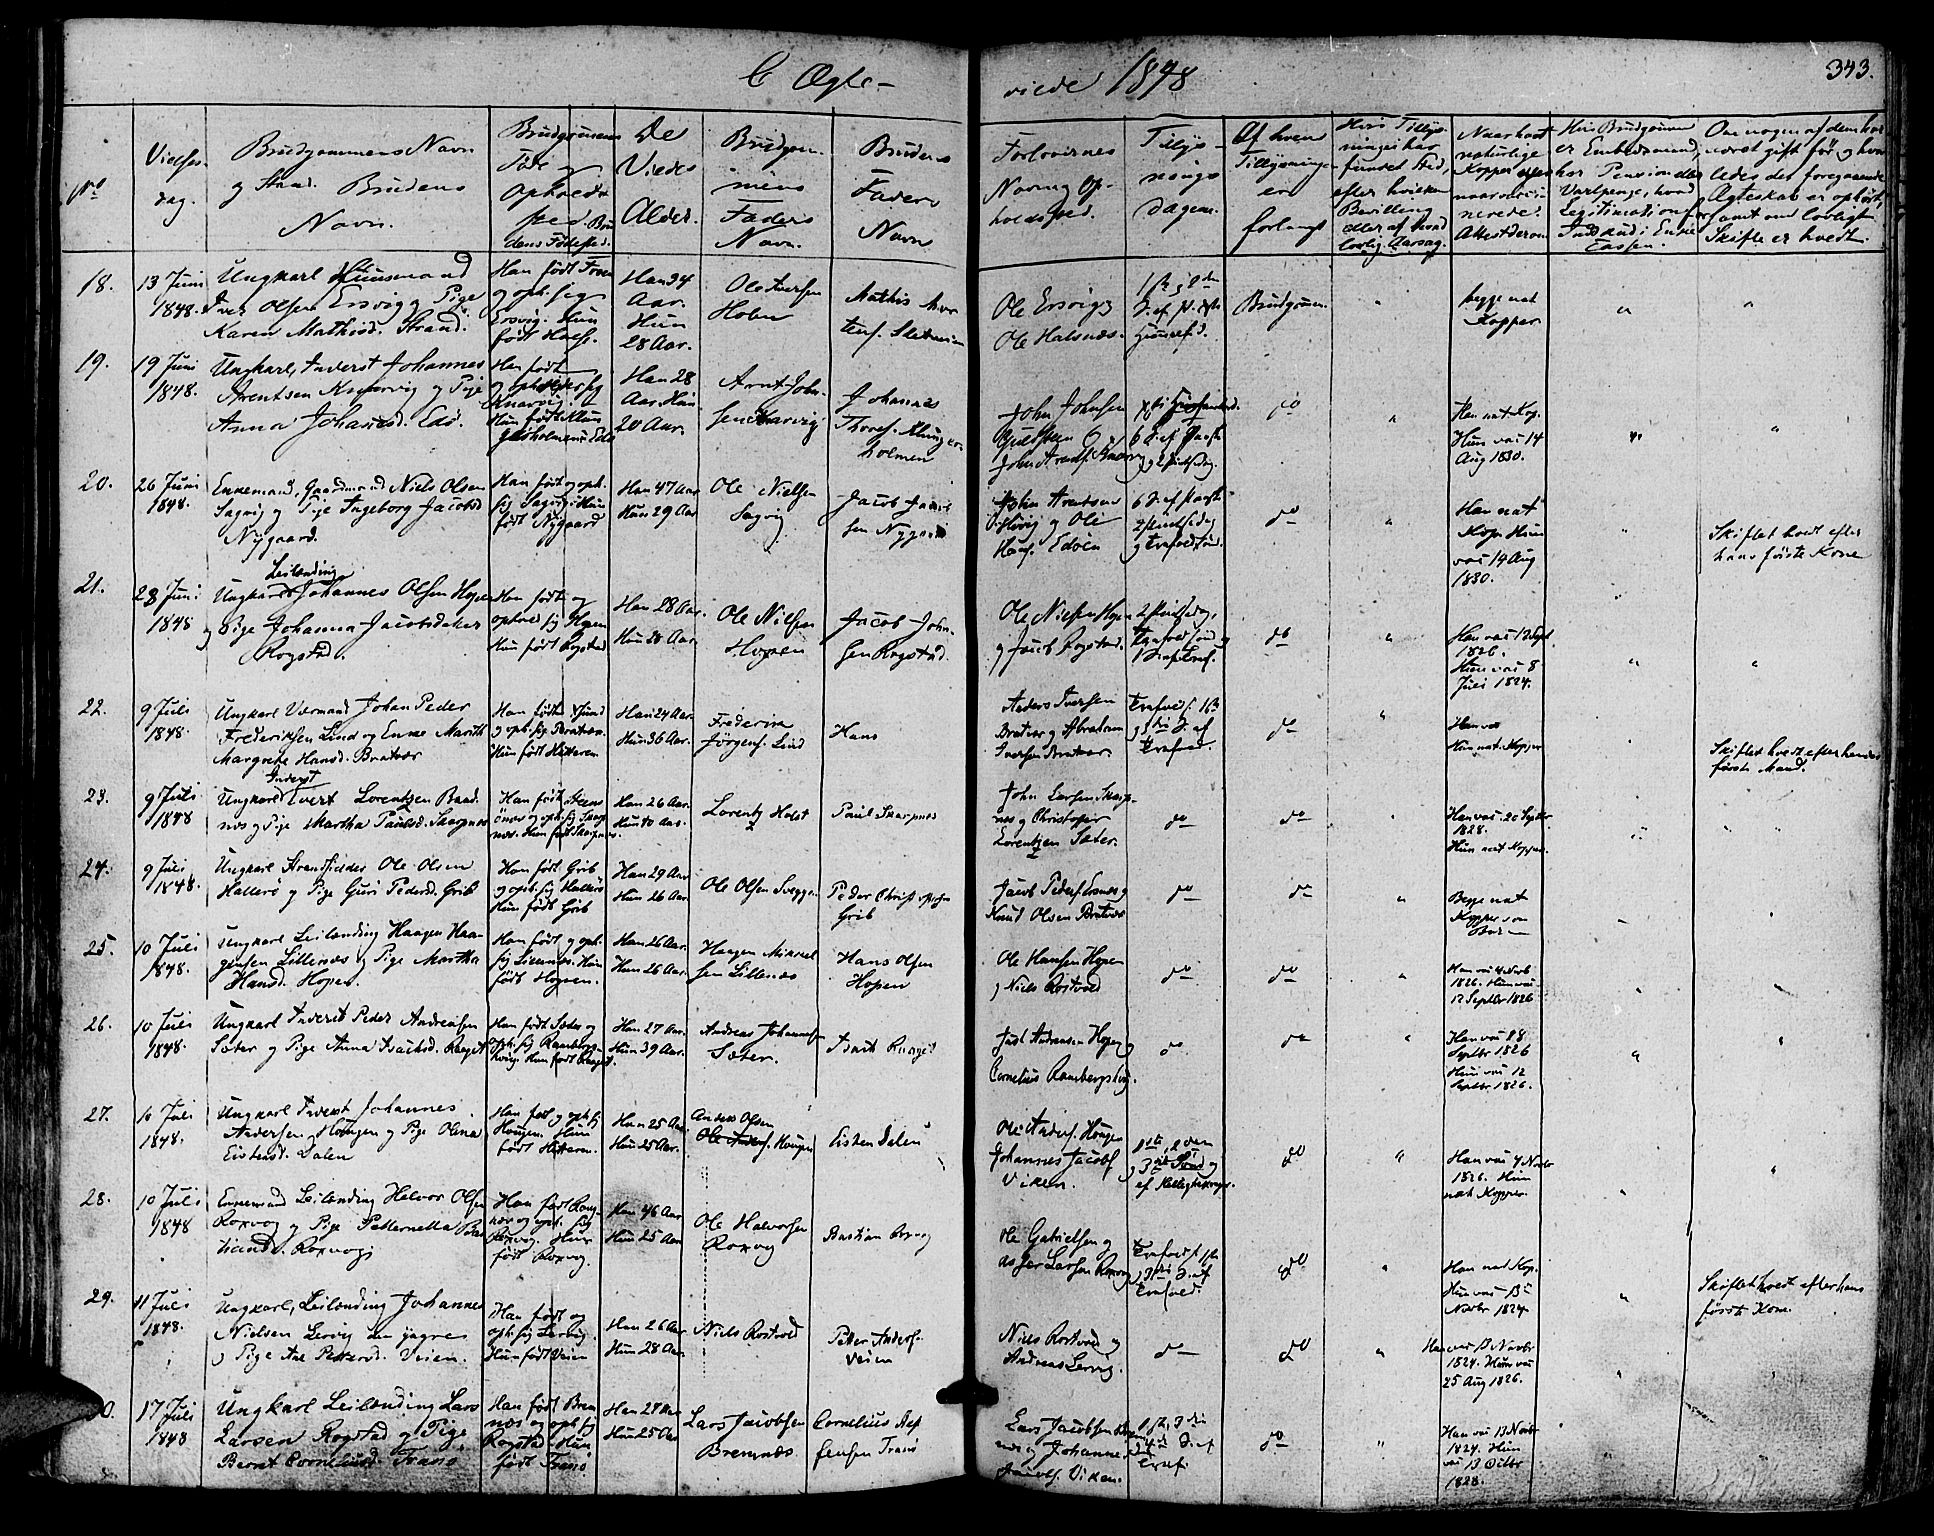 C Ægte-
viede 1848
343.
No
Vielses
dag.
Brudgommens Navn
og Stand. Brudens
Navn.
Brudgommens
Føde og
Opholds
sted. Bru
dens Fødested.
De
Viedes
Alder.
Brudgom
mens
Faders
Navn.
Brudens
Faders
Navn
Forlovernes
Navn og Op-
holdssted.
Tillys-
nings
dagene.
Af hvem
Tillysningen
er
forlangt
Hvis Tillys-
ninges har
fundet Sted,
efter hvilken
Bevilling
eller af hvad
lovlig Aarsag.
Naar havt
naturlige
Kopper eller
naar vacci-
nerede.
Attest derom
Hvis Brudgommen
er Embedsmand,
har Pension eller
Vartpenge, hvad
Legitimation for
Indskud i Enke
Cassen.
Om nogen af dem har
været gift før og hvor
ledes det foregaaende
Ægteskab er ophørt,
samt om lovligt
Skifte er holdt.
18.
13 Juni
1848.
Ungkarl Huusmand
Iver Olsen Ersvig og Pige
Karen Mathisd. Strand.
Han født
og oph. sig
Ersvig. Hun
født
Han 34
Aar.
Hun
28 Aar.
Ole Iversen
Holen
Mathis
Ole Ersvig
Ole Halsnæs.
Brudgom.
"
begge nat
Kopper
"
"
19.
19 Juni
1848.
Ungkarl, Inderst Johannes
Arentsen Knarvig og Pige
Anna Johansd. Edø.
Han født
og opholder sig
Knarvig.
Hun født
Han 28
Aar. Hun
20 Aar.
Arnt John-
sen Knarvig
Johannes
Thores. Klunger
holmen
John Johnsen
John Arentsen Knarvig
do
"
Han nat. Kop.
Hun vac 14
Aug 1830.
"
"
20.
26 Juni
1848.
Enkemand, Gaardmand Niels Olsen
Sagvig og Pige Ingeborg Jacobsd
Nygaard.
Han født og oph.
sig Sagvig. Hun
født Nygaard
Han 47 Aar
Hun 29 Aar
Ole Nielsen
Sagvig
Jacob
sen Nygaard
John Arentsen
og Ole
Hans. Edøen
do
"
Han nat
Kop. Hun
vac 14 Aug
1830.
"
Skiftet holdt efter
hans første Kone
21.
28 Juni
1848
Leilænding
Ungkarl Johannes Olsen Hopen
og Pige Johanna Jacobsdatter
Rogstad.
Han født og
ophold. sig Hopen
Hun født Rogstad
Han 28 Aar.
Hun 28 Aar.
Ole Nielsen
Hopen
Jacob John-
sen Rogstad.
Ole Nielsen Hopen
og Jacob Rogstad.
do
"
Han vac 12 Sept
1826.
Hun vac 8
Juli 1824.
"
"
22.
9 Juli
1848.
Ungkarl Værmand Johan Peder
Frederiksen Lind og Enke Marith
Margrete Hansd. Bratvær
Han født
og oph. sig Bratvær.
Hun født Hitteren.
Han 24 Aar.
Hun 36 Aar.
Frederik
Jørgens. Lind
Hans
Anders Iversen
Bratvær og Abraham
Iversen Bratvær.
do
"
Han vac
Hun nat. Kopper
"
Skiftet holdt efter hendes
første Mand.
23.
9 Juli
1848
Inderst
Ungkarl Evert Lorentzen
næs og Pige Martha Paulsd. Skarpnæs
Han født
og oph. sig Skarp
næs. Hun født Skarpnæs.
Han 26 Aar.
Hun 40 Aar.
Lorentz Holst
Paul Skarpnes
John Larsen Skarp-
næs og Christopher
Lorentzen Sæter.
do
do
"
Han vac. 20 Septbr
1828.
Hun nat Kopper.
"
"
24.
9 Juli
1848.
Ungkarl Strandsidder Ole Olsen
Hallerø og Pige Guri Pedersd. Grib
Han født Grib
og oph. sig Hallerø
Hun født Grib
Han 29 Aar
Hun 26 Aar
Ole Olsen
Peder Christophersen
Grib
Jacob Peders. og
Knud Olsen Bratvær
do
do
"
Begge nat
Kopper som
Børn
"
"
25.
10 Juli
1848.
Ungkarl Leilænding Haagen Haa-
gensen Lillenæs og Pige Martha
Hansd. Hopen.
Han født og oph.
sig Lillenæs. Hun
født Hopen.
Han 26 Aar.
Hun 26 Aar
Haagen Mikael
sen Lillenæs
Hans Olsen
Hopen
Ole Hansen Hopen
og Niels Rostvold
do
do
"
Han vac 4 Novb
1826. Hun vac
12 Septbr 1826
"
"
26.
10 Juli
1848.
Ungkarl Inderst Peder Andreassen
Sæter og Pige Anna Isachsd. Ranget
Han født Sæter og
oph. sig Ramberg-
Hun født Ranget.
Han 27 Aar.
Hun 39 Aar.
Andreas Johannes
Sæter.
Isach Ranget
Andreasen Hopen og
Cornelius
do
do
"
Han vac 28
Septbr 1826
Hun vac 12
Septbr 1826.
"
"
27.
10 Juli
1848.
Ungkarl Inderst Johannes
Andersen Hougen og Pige Olina
Eistensd. Dalen
Han født og oph. sig
Hougen. Hun
født Hitteren.
Han 25 Aar.
Hun 25 Aar.
Anders Olsen
Hougen
Eisten Dalen
Ole Anders. Hougen
Johannes Jacobs
Viken.
do
"
Han vac 4 Novbr
1826. Hun
nat Kopper.
"
"
28.
10 Juli
1848
Enkemand Leilænding Halvor Olsen
Roxvog og Pige Petternella Bas
tiansd. Roxvog
Han født
næs og oph. sig
Roxvog. Hun
født Roxvog.
Han 46 Aar
Hun 25 Aar
Ole Halvorsen
Roxvog
Bastian Roxvog
Ole Gabrielsen og
Larsen Roxvog
do
"
Han nat Kop.
Hun vac 13
Novbr 1824.
"
Skiftet holdt efter hans
første Kone.
29.
11 Juli
1848.
Ungkarl, Leilænding Johannes
Nielsen Lervig den yngre
og Pige Ane Pettersd. Veien.
Han født og
oph. sig Lervig.
Hun født Veien
Han 26 Aar.
Hun 28 Aar
Niels Rostvold
Petter Anders-
Veien
Niels Rostvold og
Andreas Lervig.
do
do
"
Han vac 13 Novbr
1824. Hun vac
25 Aug 1826.
"
"
30.
17 Juli
1848
Ungkarl Leilænding Lars
Larsen Rogstad og Pige
Beret Corneliusd. Transø
Han født Brem
næs og oph. sig
Rogstad. Hun
født Transø
Han 24 Aar
Hun 25 Aar
Lars Jacobsen
Bremnæs
Cornelius
Transø
Lars Jacobsen
næs og Johannes
Jacobs. Viken.
do
"
Han vac 13 Novbr
1824. Hun
vac 13 Octbr
1828.